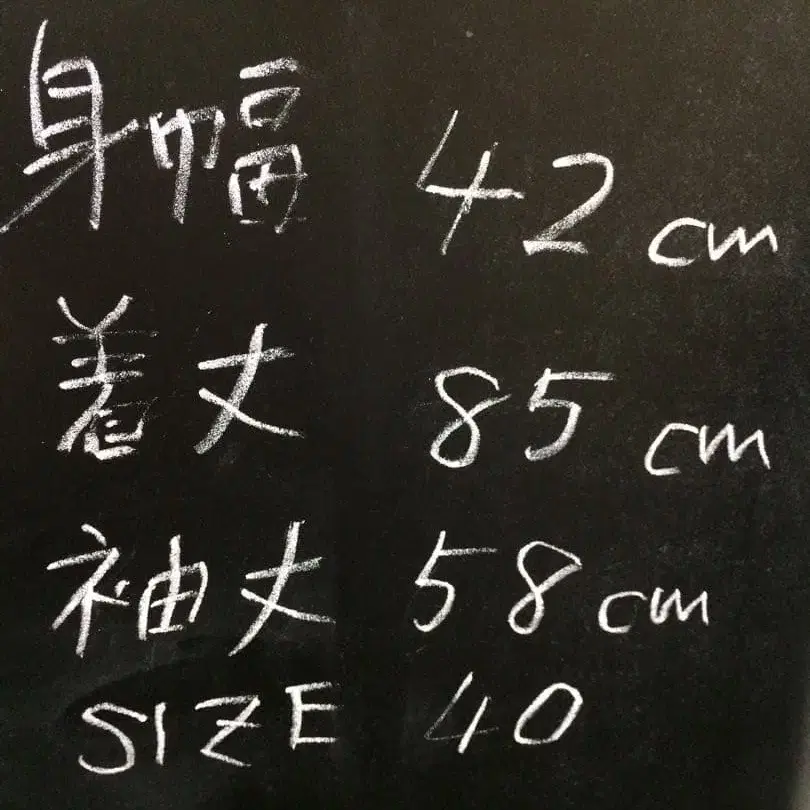 身幅 42cm
着丈 85cm
袖丈 58cm
SIZE 40